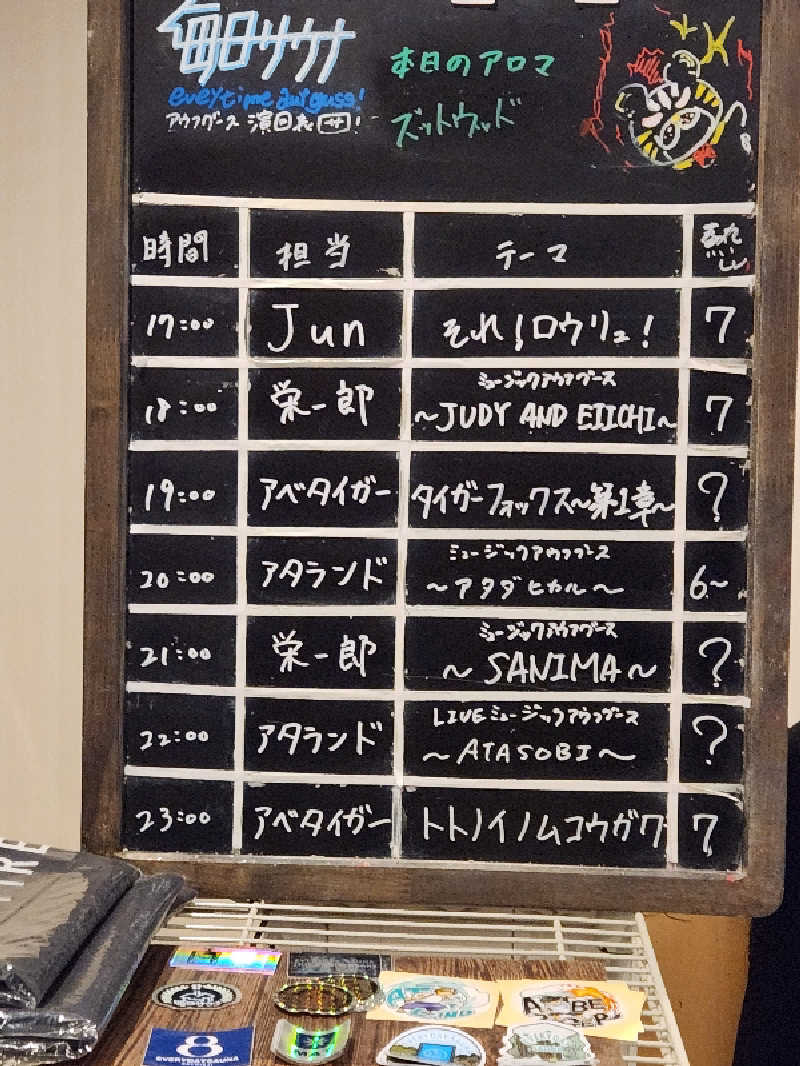 毎日サウナ
本日のアロマ
everytime aufguss!
アウフグース 演目表 サ!
ズットウッド
時間 担当 テーマ
17:00 Jun それ!ロウリュ! 7
ミュージックアウフグース
18:00 栄一郎 〜JUDY AND EIICHI〜 7
19:00 アベタイガー タイガーフォックス〜第1章〜 ?
ミュージックアウフグース
20:00 アタランド 〜アタダヒカル〜 6〜
ミュージックアウフグース
21:00 栄一郎 〜SANIMA〜 ?
LIVEミュージックアウフグース
22:00 アタランド 〜ATASOBI〜 ?
23:00 アベタイガー トトノイノムコウガワ 7
8
EVERYDAYSAUNA